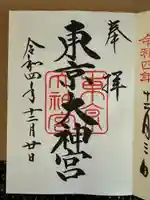 奉拝
東京大神宮
東京
大神宮
令和四年十二月廿日
令和四年
十二月三日